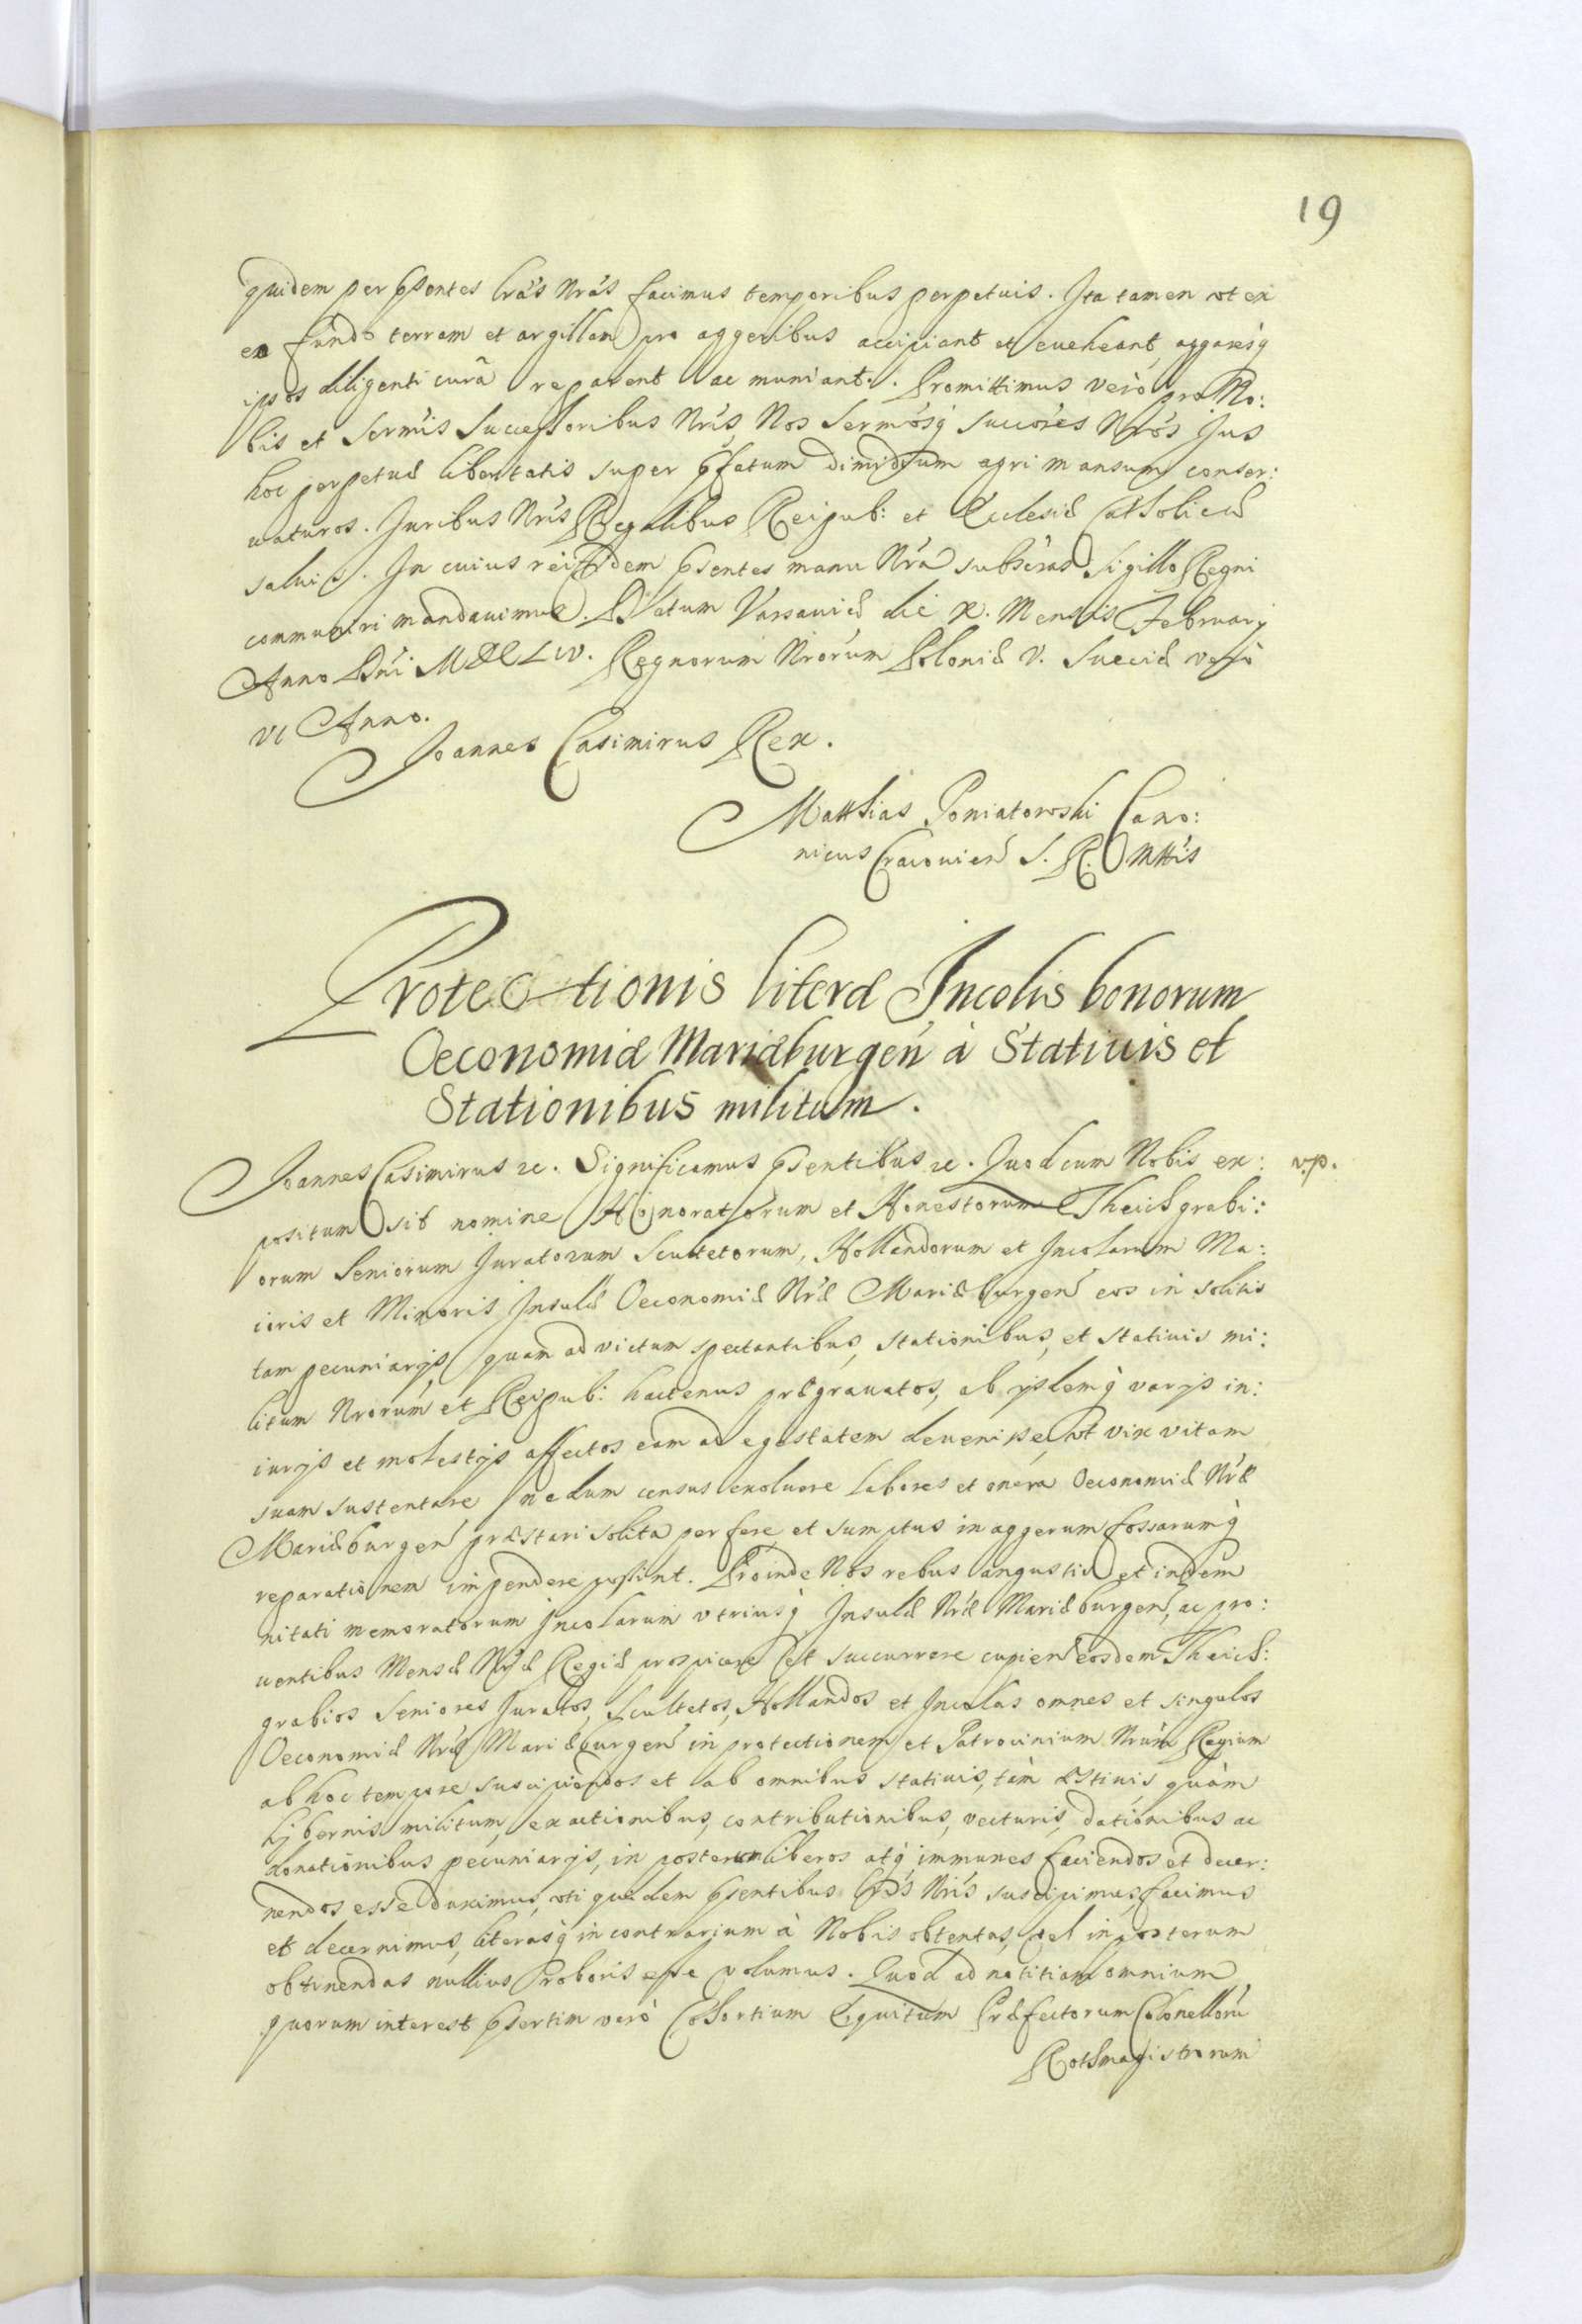 19
quidem per p̃sentes lrãs Nrãs facimus temporibus perpetuis. Ita tamen vt ex
eo fundo terram et argillam pro aggeribus accipiant et eueheant, aggeresq́
ipsos diligenti curâ reparent ac muniant. Promittimus verò pro No:
bis et Sermis Successoribus Nris, Nos Sermosq́ Succores Nros Jus
hoc perpetuæ libertatis super p̃fatum dimidium agri mansum conser:
uaturos. Juribus Nris Regalibus Reipub: et Ecclesiæ Catholicæ
saluis. In cuius rei fidem p̃sentes manu Nra subscras Sigillo Regni
communiri mandauimus. Datum Varsauiæ die X. Mensis February
Anno Dni MDCLIV. Regnorum Nrorum Poloniæ V. Sueciæ verò
VI Anno.
Joannes Casimirus Rex.
Matthias Poniatowski Cano:
nicus Cracouien S. R. Mttis
Protectionis literæ Incolis bonorum
Oeconomiæ Mariæburgen à Statiuis et
Stationibus militum.
Joannes Casimirus etc. Significamus p̃sentibus etc. Quod cum Nobis ex: v.p.
positum sit nomine Honoratorum et Honestorum Theichgrabi:
orum Seniorum Juratorum Scultetorum, Hollandorum et Incolarum Ma:
ioris et Minoris Insulæ Oeconomiæ Nræ Mariæburgen eos in solitis
tam pecuniarijs, quam ad victum spectantibus, stationibus, et statiuis mi:
litum Nrorum et Reipub: hactenus prægrauatos, ab ijsdemq́ varijs in:
iurijs et molestijs affectos eam ad egestatem deuenisse, vt vix vitam
suam sustentare, nedum census exoluere labores et onera Oeconomiæ Nræ
Mariæburgen præstari solita perferre et sumptus in aggerum fossarumq́
reparationem impendere possint. Proinde Nos rebus angustis et indem
nitati memoratorum Incolarum vtriusq́ Insulæ Nræ Mariæburgen, ac pro:
uentibus Mensæ Nræ Regiæ prospicere et succurrere cupien eosdem Theich:
grabios Seniores Juratos, Scultetos, Hollandos et Incolas omnes et singulos
Oeconomiæ Nræ Mariæburgen in protectionem et Patrocinium Nrum Regium
ab hoc tempore suscipiendos et ab omnibus statiuis, tàm æstiuis, quàm
hybernis militum, exactionibus, contributionibus, vecturis, dationibus ac
donationibus pecuniarijs, in posterum liberos atq́ immunes faciendos et decer:
nendos esse duximus, vti quidem p̃sentibus lris Nris suscipimus, facimus
et decernimus, literasq́ in contrarium à Nobis obtentas, vel in posterum
obtinendas nullius roboris esse volumus. Quod ad notitiam omnium
quorum interest p̃sertim verò Cohortium Equitum Præfectorum Colonellorũ
Rothmagistrorum